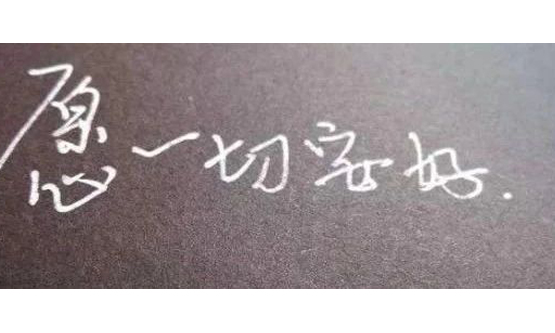 愿一切安好.